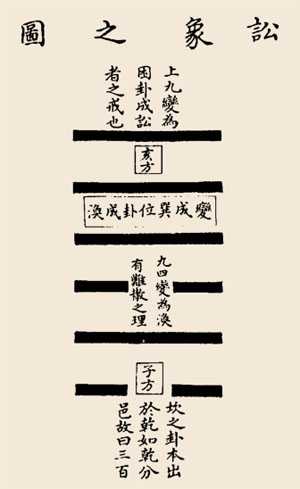 訟象之圖
上九變為
困卦成訟
者之戒也
亥方
變成巽位卦成渙
九四變為渙
有離散之理
子方
坎之卦本出
於乾如乾分
邑故曰三百